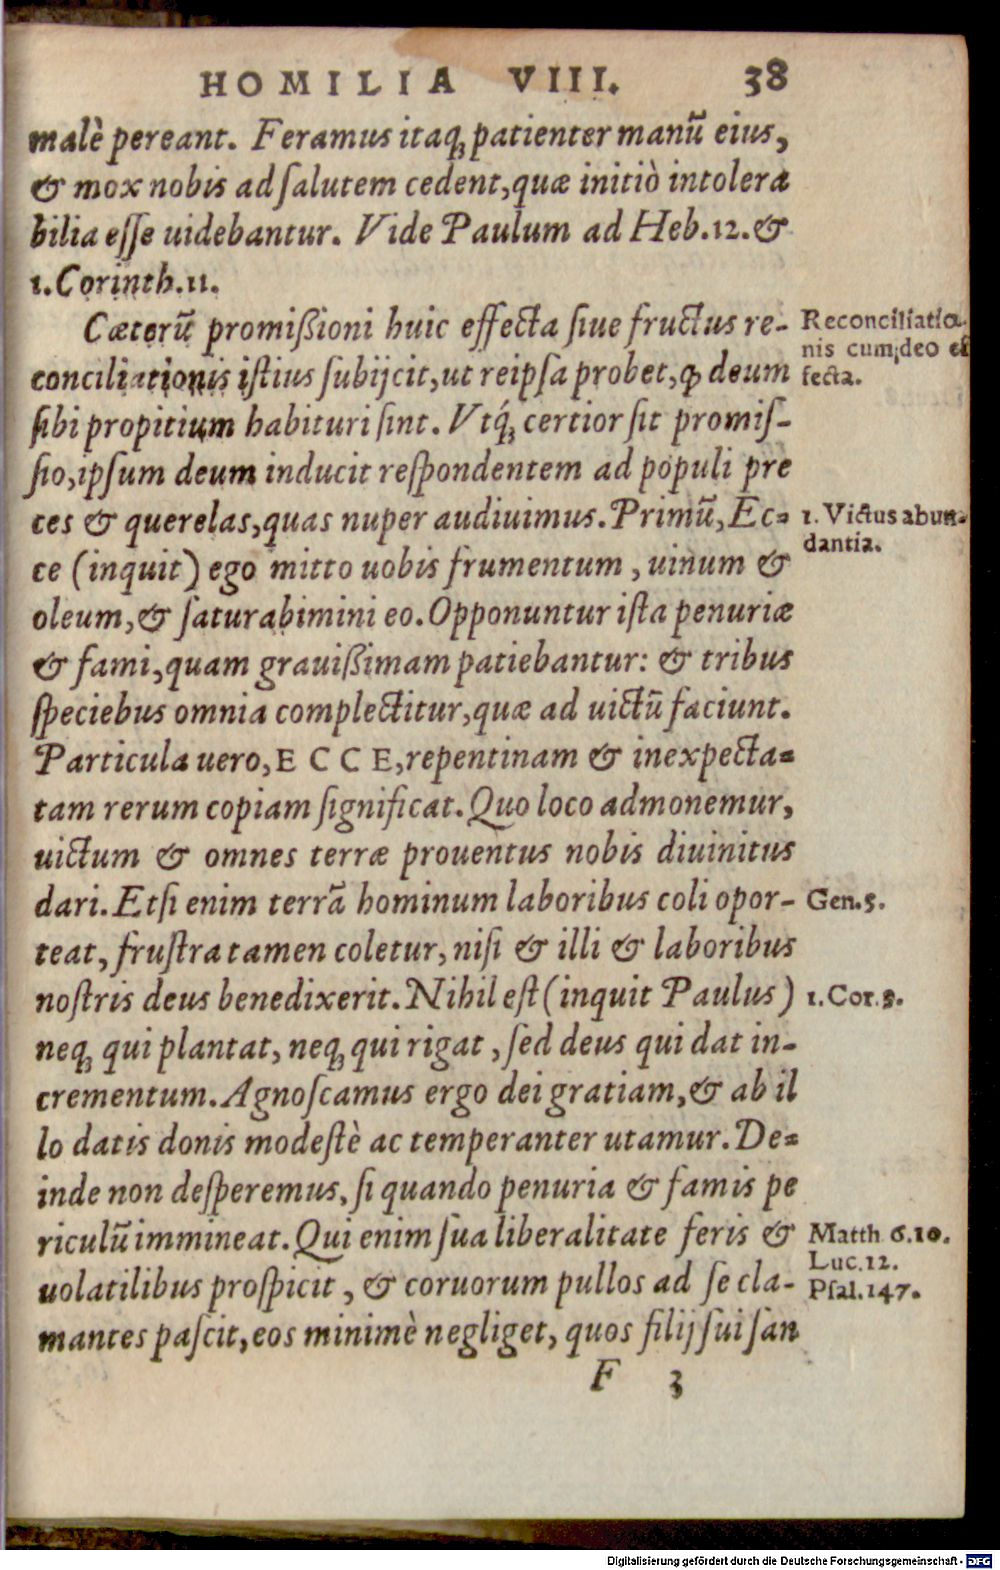 HOMILIA VIII. 38
malè pereant. Feramus itaq; patienter manũ eius,
& mox nobis ad ſalutem cedent, quæ initiò intolera
bilia eſſe uidebantur. Vide Paulum ad Heb. 12. &
1. Corinth. 11.
Cæterũ promißioni huic effecta ſiue fructus re-
conciliationis iſtius ſubijcit, ut reipſa probet, ꝙ deum
ſibi propitium habituri ſint. Vtq́; certior ſit promiſ-
ſio, ipſum deum inducit reſpondentem ad populi pre
ces & querelas, quas nuper audiuimus. Primũ, Ec-
ce (inquit) ego mitto uobis frumentum, uinum &
oleum, & ſaturabimini eo. Opponuntur iſta penuriæ
& fami, quam grauißimam patiebantur: & tribus
ſpeciebus omnia complectitur, quæ ad uictũ faciunt.
Particula uero, ECCE, repentinam & inexpecta-
tam rerum copiam ſignificat. Quo loco admonemur,
uictum & omnes terræ prouentus nobis diuinitus
dari. Etſi enim terrã hominum laboribus coli opor-
teat, fruſtra tamen coletur, niſi & illi & laboribus
noſtris deus benedixerit. Nihil eſt (inquit Paulus)
neq; qui plantat, neq; qui rigat, ſed deus qui dat in-
crementum. Agnoſcamus ergo dei gratiam, & ab il
lo datis donis modeſtè ac temperanter utamur. De-
inde non deſperemus, ſi quando penuria & famis pe
riculũ immineat. Qui enim ſua liberalitate feris &
uolatilibus proſpicit, & coruorum pullos ad ſe cla-
mantes paſcit, eos minimè negliget, quos filij ſui ſan
F 3
Reconciliatio
nis cum deo ef
fecta.
1. Victus abun-
dantia.
Gen. 5.
1. Cor. 3.
Matth. 6. 10.
Luc. 12.
Pſal. 147.
Digitalisierung gefördert durch die Deutsche Forschungsgemeinschaft - DFG